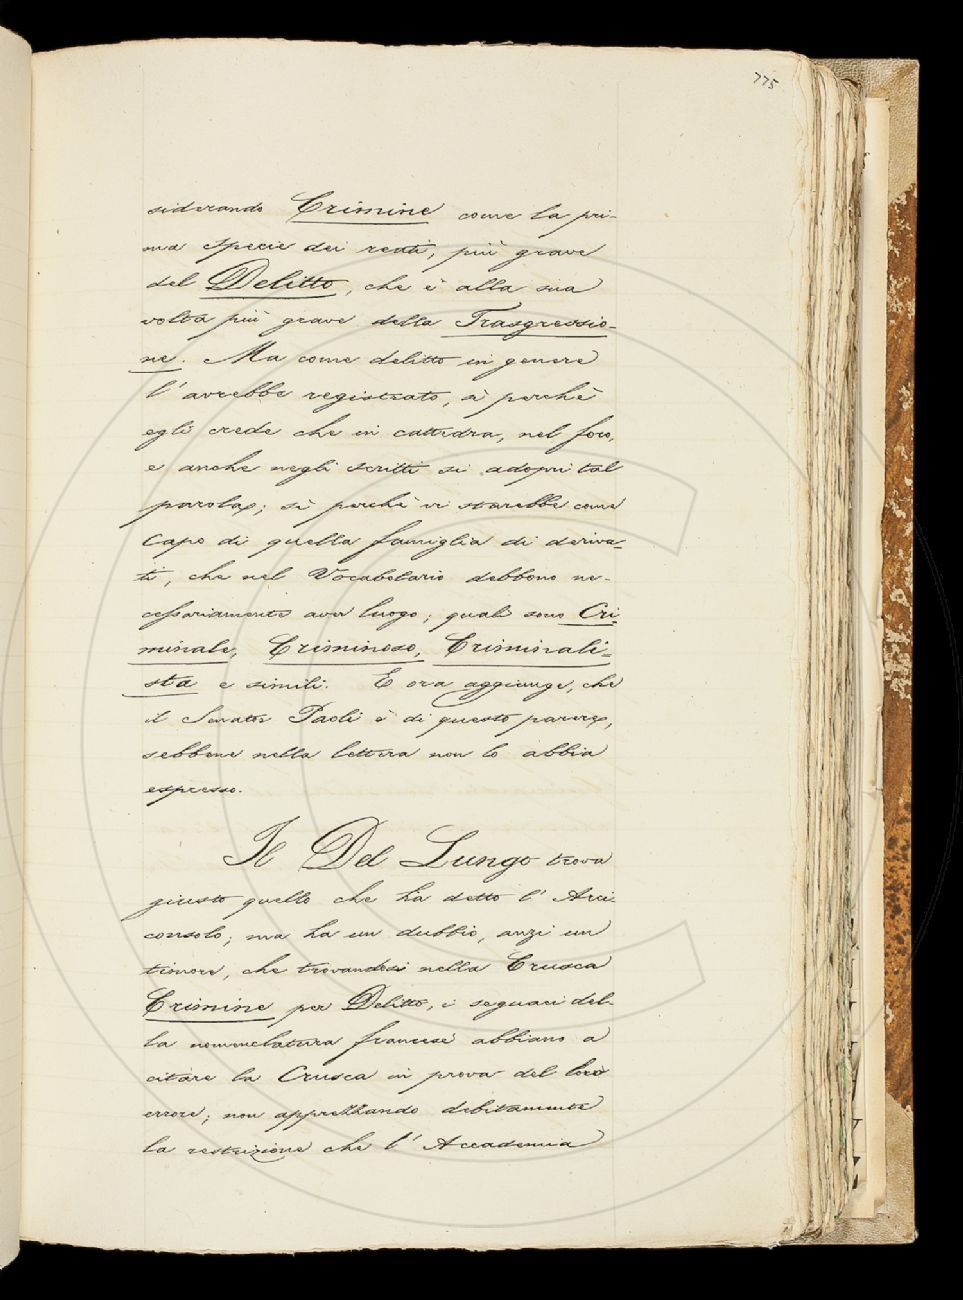 775
siderando Crimine come la pri-
ma specie dei reati, più grave
del Delitto, che è alla sua
volta più grave della Trasgressio-
ne. Ma come delitto in genere
l'avrebbe registrato, sì perchè
egli crede che in cattedra, nel foro,
e anche negli scritti si adopri tal
parola; sì perchè vi starebbe come
Capo di quella famiglia di deriva-
ti, che nel Vocabolario debbono ne-
cessariamente aver luogo; quali sono Cri-
minale, Criminoso, Criminali-
sta e simili. E ora aggiunge, che
il Senator Paoli è di questo parere,
sebbene nella lettera non lo abbia
espresso.
Il Del Lungo trova
giusto quello che ha detto l'Arci-
consolo; ma ha un dubbio, anzi un
timore, che trovandosi nella Crusca
Crimine per Delitto, i seguaci del-
la nomenclatura francese abbiano a
citare la Crusca in prova del loro
errore; non apprezzando debitamente
la restrizione che l'Accademia